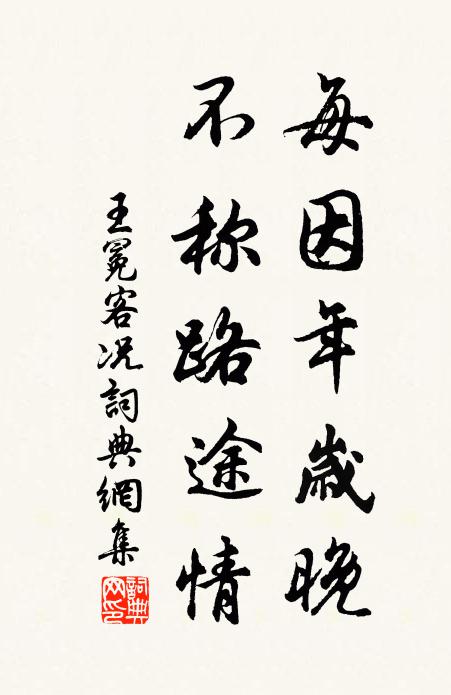 每因年歲晚
不称路途情
王冕客况詞典網集
詞典网印